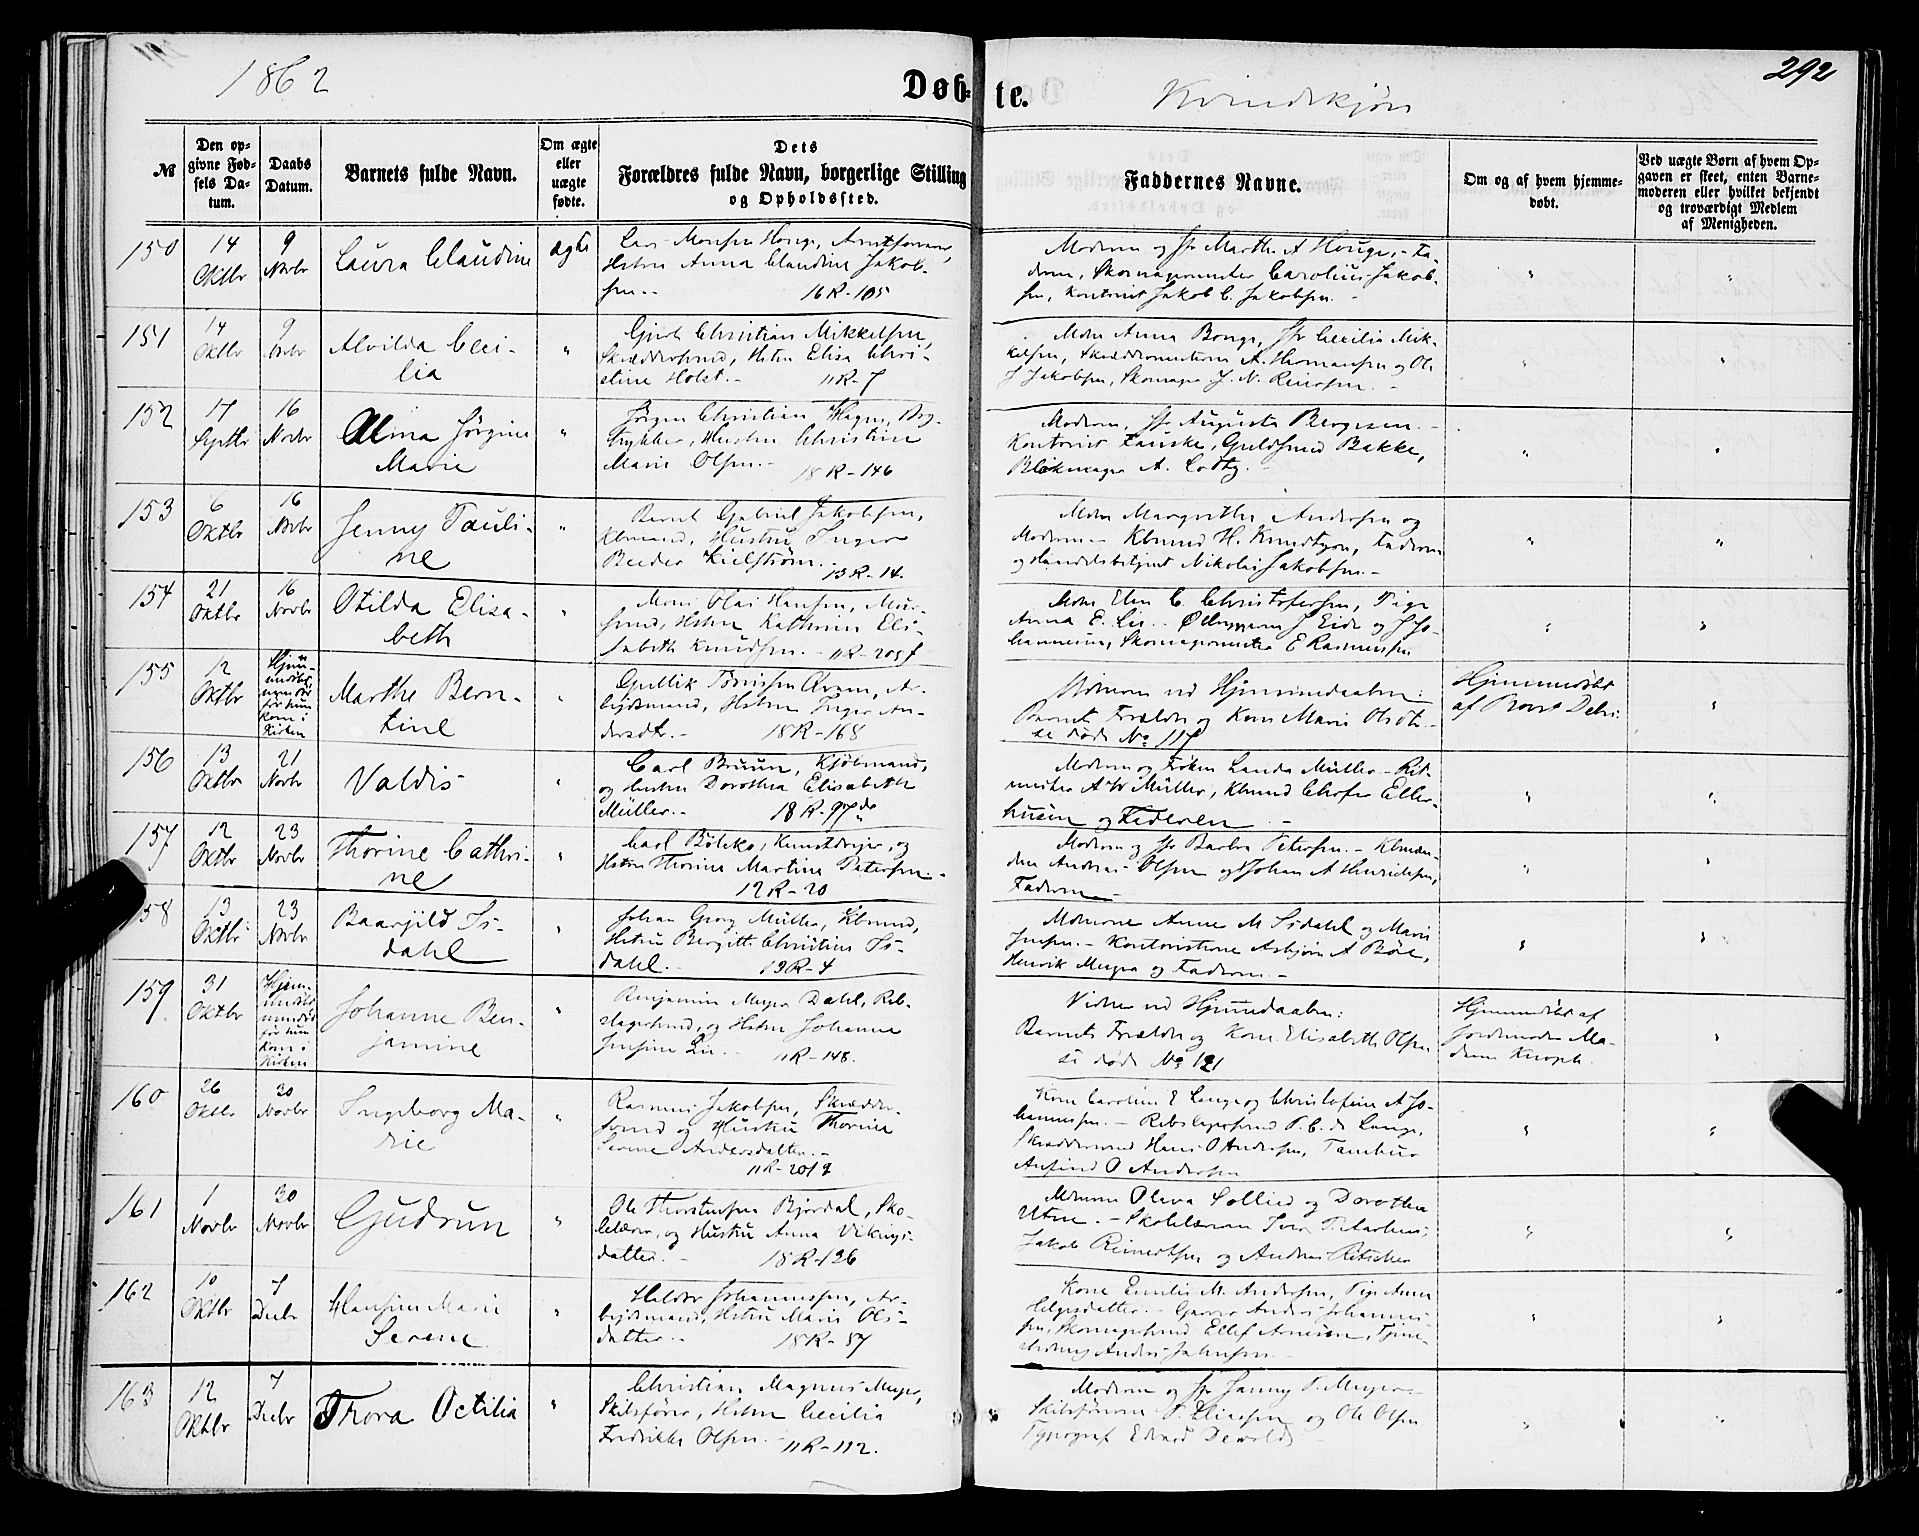 1862
Døbte.
Kvindekjøn
292
№
Den opgivne Fødsels Datum.
Daabs Datum.
Barnets fulde Navn.
Om ægte eller uægte fødte.
Dets Forældres fulde Navn, borgerlige Stilling og Opholdssted.
Faddernes Navne.
Om og af hvem hjemmedøbt.
Ved uægte Børn af hvem Opgaven er skeet, enten Barnemoderen eller hvilket bekjendt og troværdigt Medlem af Menigheden.
150
14 Oktbr
9 Novbr
Laura Claudine
ægte
Hstru Anna Claudine Jakob-
sen.-
16R-105
Moderen og Jfr Marthe A Houge,- Fa-
deren, Skomagermester Carolius Jakob-
sen, Kontorist Jakob C. Jakobsen.-
151
14 Oktbr
9 Novbr
Alvilda Ceci-
lia
"
Gjert Christian Mikkelsen,
Skræddersvend, Hstru Elisa Chri-
stine Holst.-
11R-7
Mdme Anna Bonge, Jfr Cecilia Mik-
kelsen, Skræddermesterne A. Hermansen og Ole
J Jakobsen, Skomager J. N. Reimersen.-
152
17 Septbr
16 Novbr
Alina Jørgine
Marie
"
Jørgen Christian Hagen, Bog-
trykker, Hustru Christine
Marie Olsen.-
18R-146
Moderen, Jfr Augusta Bergesen.-
Kontorist Fauske, Guldsmed Bakke,
Blikmager A.
153
6 Oktbr
16 Novbr
Jenny Pauli-
ne
"
Bernt Gabriel Jakobsen,
Kbmand, Hustru Inger
Kielstrøm.-
13R-14.
Mdme Margrethe Andersen og
Moderen.- Kbmand H. Knudtzon, Faderen
og Handelsbetjent Nikolai Jakobsen.-
154
21 Oktbr
16 Novbr
Otilda Elisa-
beth
"
Mons Olai Hansen, Mur-
svend, Hstru Kathrine Eli-
sabeth Knudsen.-
Mdme Elen C. Christofersen, Pige
Anna E. Lie.- J Eide og J Jo-
hannesen, Skomagermester E Rasmussen
155
12 Oktbr
Hjem-
medøbt,
men død
før hun
kom i
Kirken
Marthe Bern-
tine
"
Gullik Tønnesen Aven, Ar-
bejdsmand, Hstru Inger An-
dersdtr.-
18R-168
Vidnerne ved Hjemmedaaben:
Barnets Forældre og Kone Marie Olsdtr.-
se døde No 117
Hjemmedøbt
af Provst
156
13 Oktbr
21 Novbr
Valdis
"
Carl Bruun, Kjøbmand,
og Hustru Dorothea Elisabeth
Müller.-
18R-97
Moderen og Frøken Landa Müller - Rit-
mester A W Müller, Kbmand Chrfr Eller-
husen og Faderen.-
157
12 Oktbr
23 Novbr
Thorine Cathri-
ne
"
Carl Bölcke, Kunstdrejer, og
Hstru Thorine Martine Petersen.-
12R-20
Moderen og Jfr Barbra Petersen.- Kbmæn-
dene Andreas Olsen og Johan A Henrichsen,
Faderen
158
13 Oktbr
23 Novbr
Baarjild Is-
dahl
"
Johan Georg Müller, Kbmand,
Hstru Bergitte Christine Is-
dahl.-
19R-4
Mdmerne Anne M Isdahl og Marie
Jensen.- Kontoristerne Asbjørn A Böe,
Henrik Meyer og Faderen.-
159
31 Oktbr
Hjem-
medøbt
men død
før hun
kom i
Kirken
Johanne Ben-
jamine
"
Benjamin Meyer Dahl, Reb-
slagersvend, og Hstru Johanne
Jensine Lie.-
11R-148.
Vidner ved Hjemmedaaben:
Barnets Forældre og Kone Elisabeth Olsen
se døde No 121
Hjemmedøbt af
Jordemoder Ma-
dame Knoph.
160
26 Oktbr
30 Novbr
Ingeborg Ma-
rie
"
Rasmus Jakobsen, Skrædder-
svend og Hustru Thorine
Serene Andersdatter.-
Kone Caroline E Lange og Christofine A Jo-
hannessen.- Rebslagersvend P. C. de Lange,
Skræddersvend Hans O Andersen, Tambur
Anfind O Andersen
161
1 Novbr
30 Novbr
Gudrun
"
Ole Thorstensen Bjørdal, Sko-
lelærer, og Hustru Anna Vikings-
datter.-
18R-126
Mdmerne Oleva Sollied og Dorothea
Utne.- Skolelærerne Iver P. Aarhus,
Jakob Reinertsen og Andreas Ritscher
162
10 Oktbr
7 Decbr
Hansine Marie
Serene
"
Heldor Johannessen, Ar-
bejdsmand, Hstru Marie Ols-
datter.-
18R-87
Kone Emilie M. Andersen, Pige Anna
Helgesdatter.- Garver Anders Johannes-
sen, Skomagersvend Ellef Arnesen, Tjene-
stedreng Anders Johnsen.-
163
12 Oktbr
7 Decbr
Thora Octilia
"
Christian Magnus Meyer,
Skibsfører, Hstru Cecilia
Fredrikke Olsen.-
11R-112.
Moderen og Jfr Janny P. Meyer.-
Skibsførerne P. Eliassen og Ole Olsen
Typograf Edvard Dewold